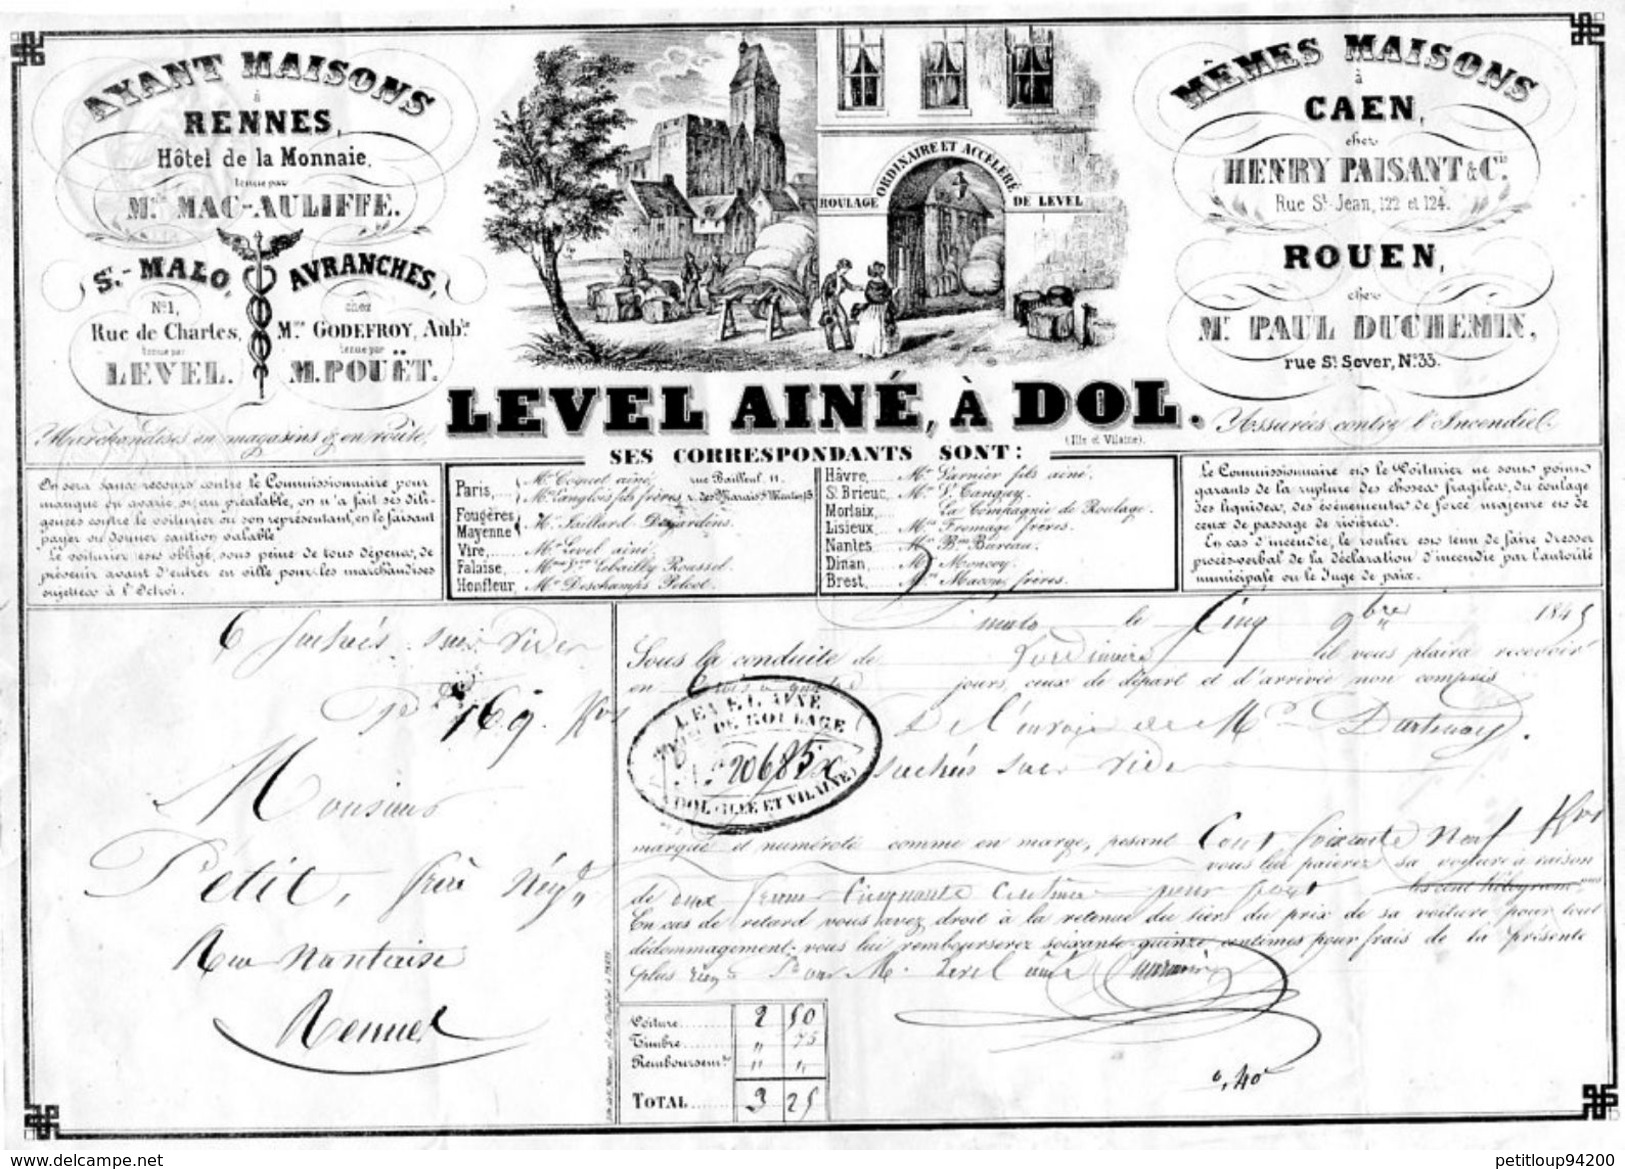 AYANT MAISONS
à
RENNES,
Hôtel de la Monnaie,
tenue par
MAC-AULIFFE.
St.-MALO,
No 1,
Rue de Chartes,
tenue par
LEVEL.
AVRANCHES,
chez
Mme GODEFROY, Aubte
tenue par
M. POUËT.
ROULAGE ORDINAIRE ET ACCÉLÉRÉ DE LEVEL
MÊMES MAISONS
à
CAEN,
chez
HENRY PAISANT & Cie
Rue St-Jean, 122 et 124.
ROUEN,
chez
Mr PAUL DUCHEMIN,
rue St Sever, No 33.
LEVEL AINÉ, À DOL.
(Ille et Vilaine).
Marchandises en magasins & en route,
Assurées contre l'Incendie.
SES CORRESPONDANTS SONT:
On sera sans recours contre le Commissionnaire pour
manque ou avarie, si, au préalable, on n'a fait ses dili-
gences contre le voiturier ou son représentant, en le faisant
payer ou donner caution valable.
Le voiturier est obligé, sous peine de tous dépens, de
prévenir avant d'entrer en ville pour les marchandises
sujettes à l'Octroi.
Paris, Mr Coquet ainé, rue Bailleul, 11.
Mr Langlois fils frères, r. des Marais St Martin, 45
Fougères
Mayenne Mr Jaillard Desjardins.
Vire, Mr Level ainé.
Falaise, Mme Vve Lebailly Roussel.
Honfleur, Mr Deschamps Pelcot.
Hâvre, Mr Garnier fils ainé.
St Brieuc, Mr L. Tanguy.
Morlaix, La Compagnie de Roulage.
Lisieux, Mrs Fromage frères.
Nantes, Bureau.
Dinan, Mr Moncoy.
Brest, frères.
Le Commissionnaire et le Voiturier ne sont point
garants de la rupture des choses fragiles, du coulage
des liquides, des événements de force majeure et de
ceux de passage de rivières.
En cas d'incendie, le roulier est tenu de faire dresser
procès-verbal de la déclaration d'incendie par l'autorité
municipale ou le Juge de paix.
6 sur vider
169
Monsieur
Petit, frère
Rue Nantaise
Rennes
malo le Cinq 9bre 1845
Sous la conduite de Lordinaire il vous plaira recevoir
en trois à quatre jours, ceux de départ et d'arrivée non compris
De l'envoi de Mr
LEVEL AINE
DE ROULAGE
No 20685
A DOL (ILLE ET VILAINE)
sur vider
marqué et numéroté comme en marge, pesant Cent Soixante Neuf
vous lui paierez sa voiture à raison
de deux francs Cinquante Centimes pour les cent kilogrammes
En cas de retard vous avez droit à la retenue du tiers du prix de sa voiture pour tout
dédommagement; vous lui rembourserez soixante-quinze centimes pour frais de la présente
plus rien Pour M. Level ainé
Voiture 2 50
Timbre " 75
Remboursemt " "
TOTAL 3 25
0,40
delcampe.net
petitloup94200